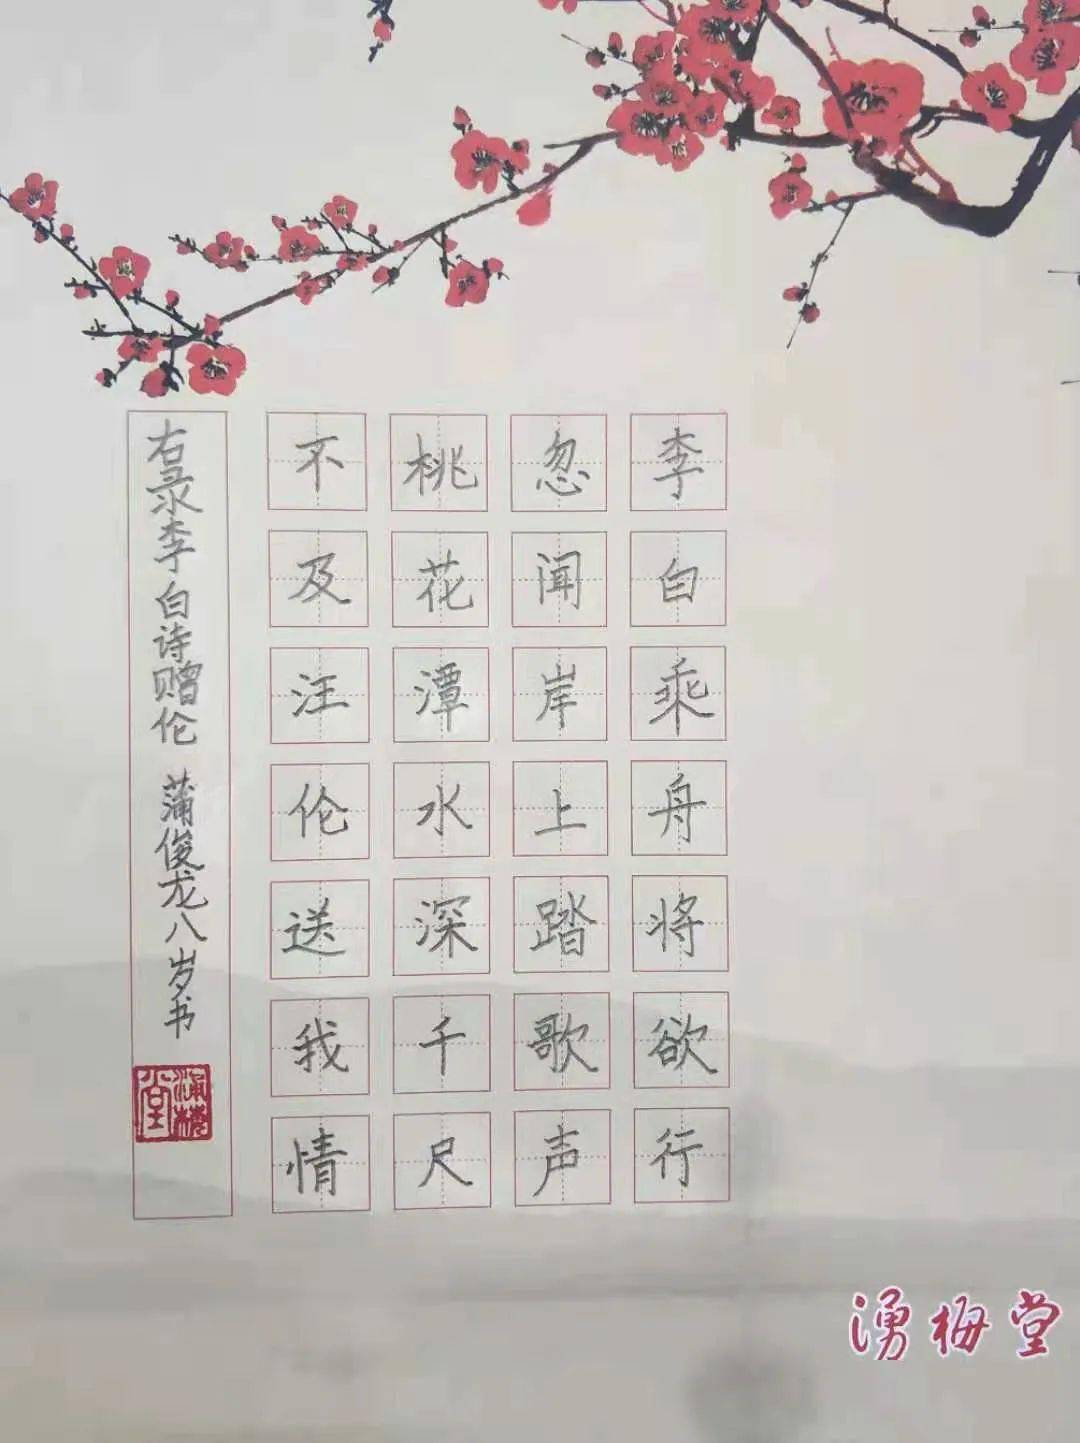 李白乘舟将欲行
忽闻岸上踏歌声
桃花潭水深千尺
不及汪伦送我情
右录李白诗赠伦 蒲俊龙八岁书
涌梅堂
湧梅堂